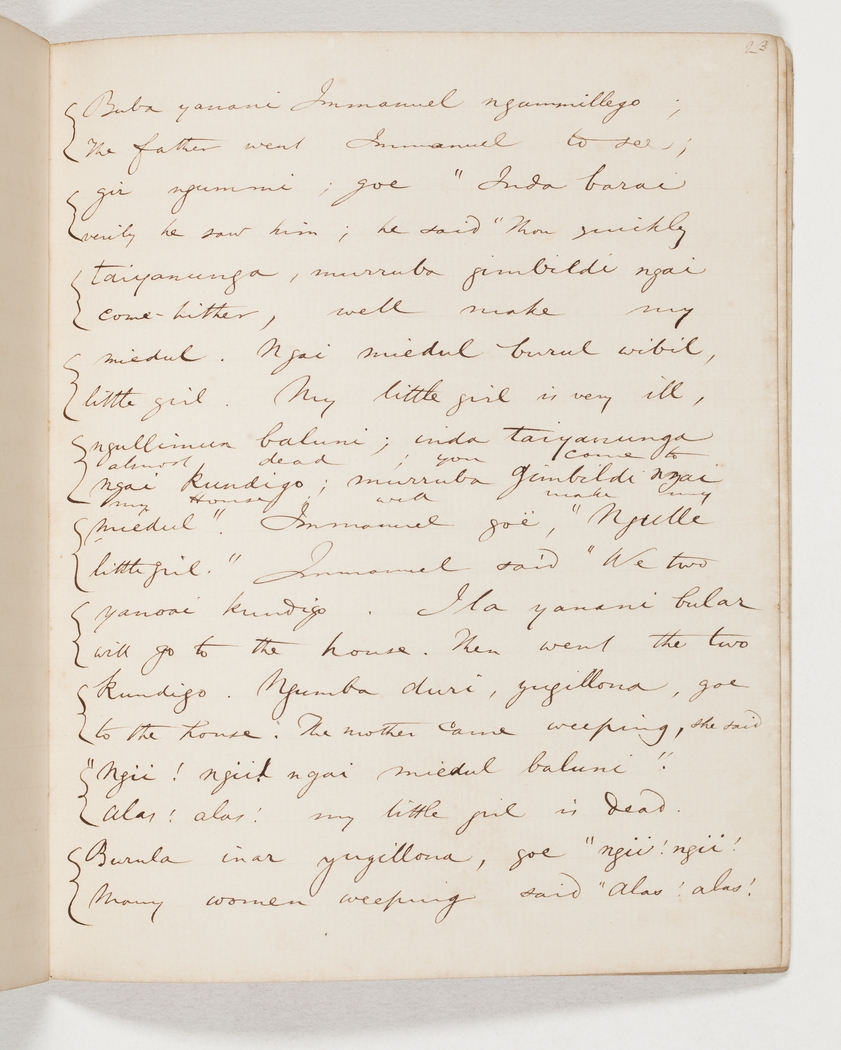 23
Buba yanani Immanuel ngummillego ;
The father went Immanuel to see ;
gir ngummi ; goe " Inda barai
verily he saw him ; he said " Thou quickly
taiyanunga , murruba gimbildi ngai
come-hither , well make my
miedul . Ngai miedul burul wibil ,
little girl . My little girl is very ill ,
ngullimun baluni ; inda taiyanunga
almost dead ; you come to
ngai kundigo ; murruba gimbildi ngai
my House ; well make my
miedul ". Immanuel goë , " Ngulle
little girl . " Immanuel said " We two
yanoai kundigo . Ila yanani bular
will go to the house . Then went the two
kundigo . Ngumba duri , yugillona , goe
to the house . The mother came weeping , she said
" Ngii ! ngii ! ngai miedul baluni ".
alas ! alas ! my little girl is dead .
Burula inar yugillona , goe " ngii ! ngii !
Many women weeping said " Alas ! alas !